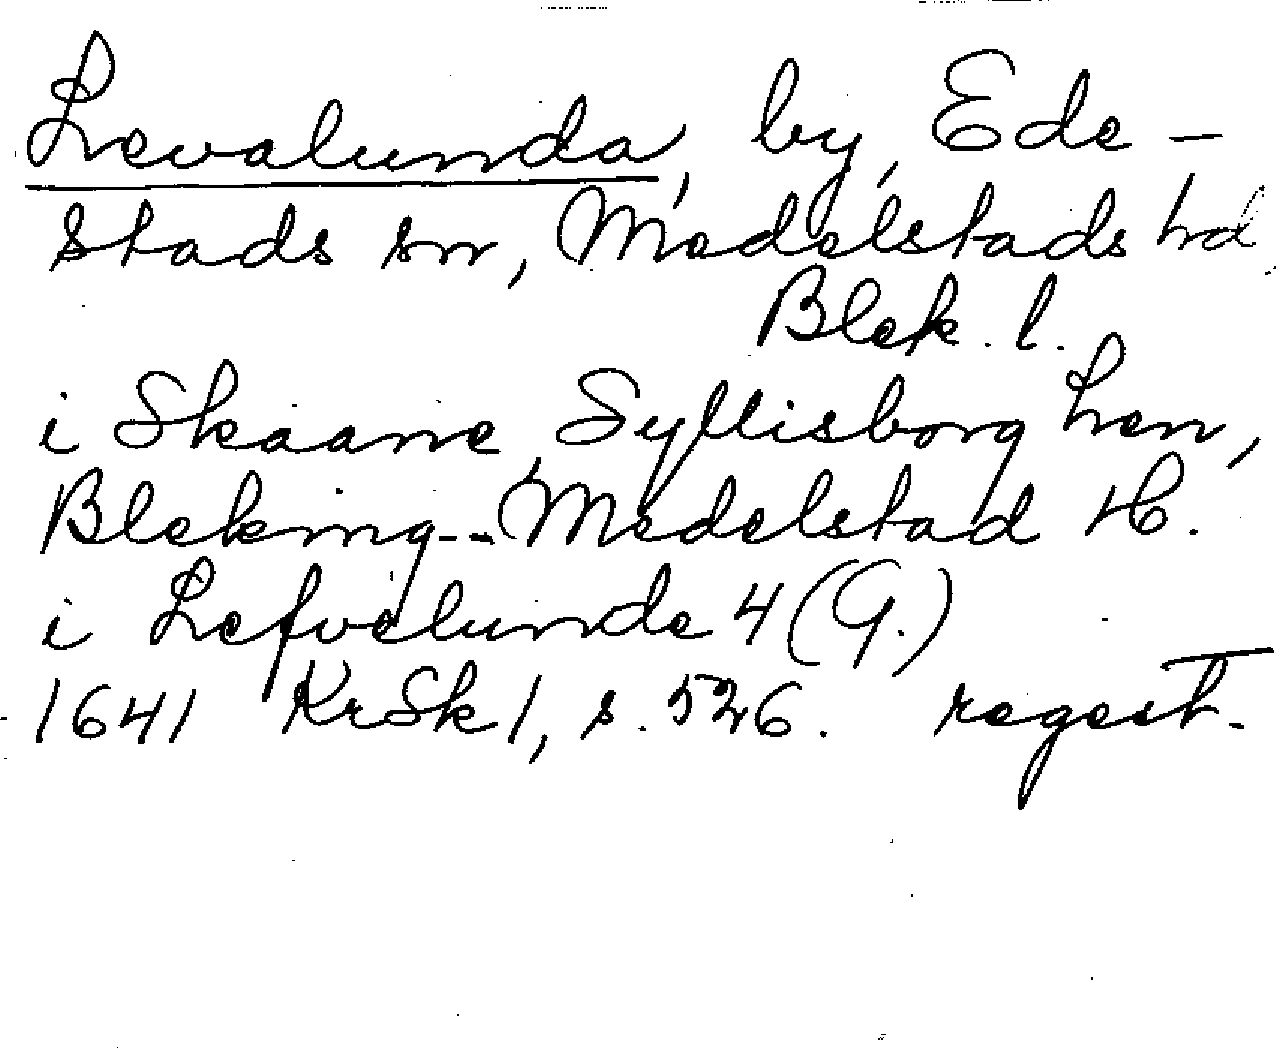 Levalunda, by, Ede-
stads sn, Medelstads hd
Blek. l.
i Skaane, Syllisborg Len,
Bleking -- Medelstad H.
i Lefvelunde 4 (G.)
1641 KrSk 1, s. 526. regest.